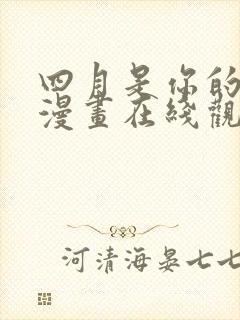 四月是你的
漫畫在綫觀
河清海晏七七